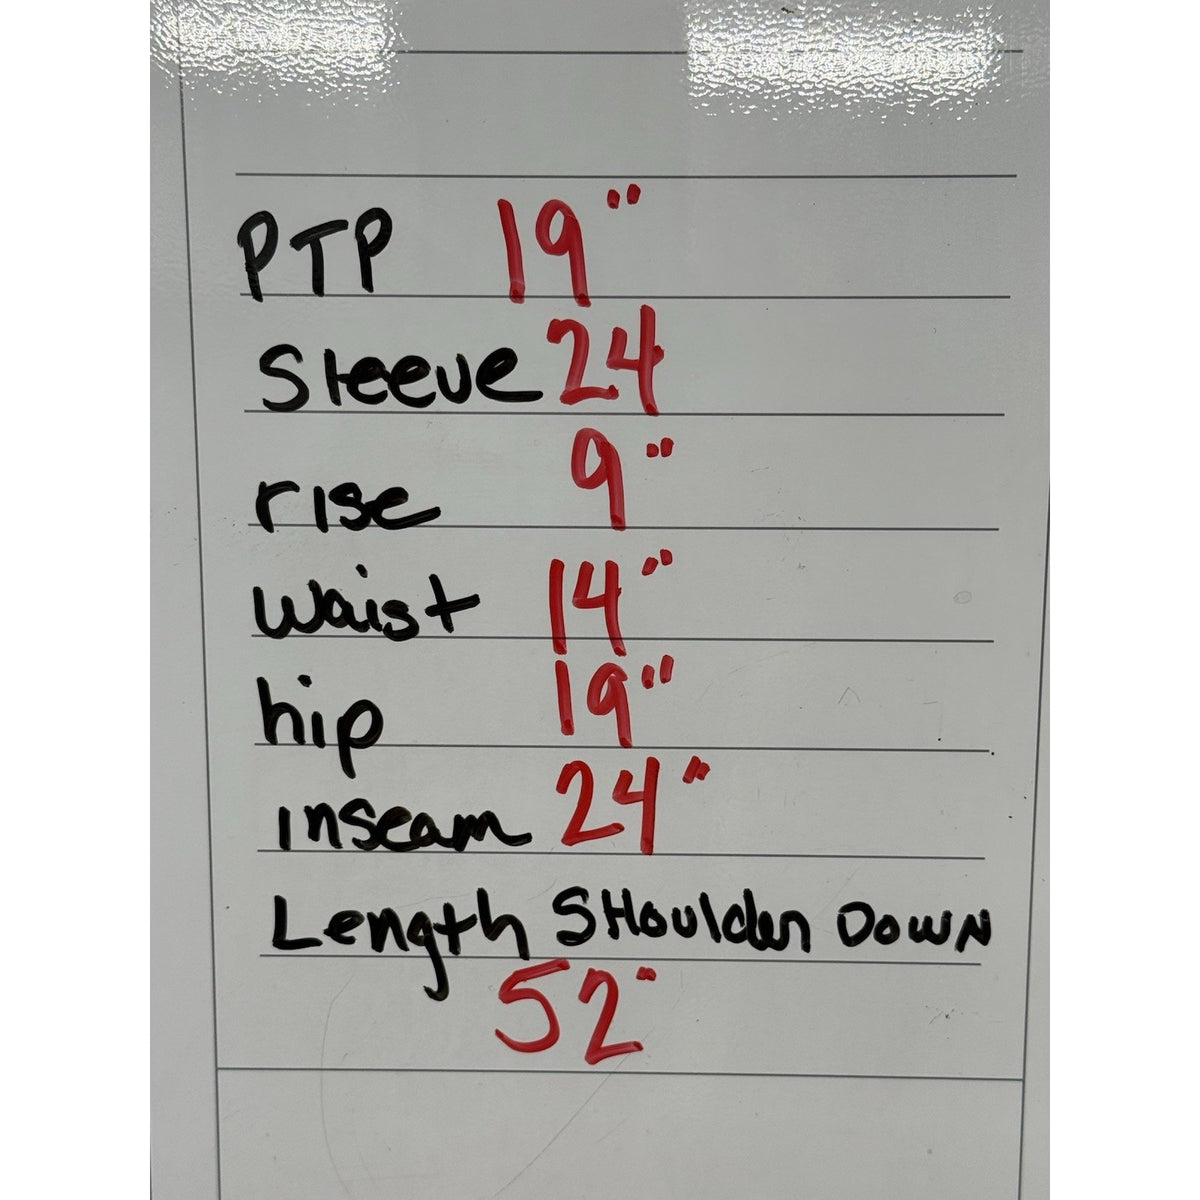 PTP 19"
Sleeve 24
rise 9"
Waist 14"
hip 19"
inseam 24"
Length SHoulder DOWN
52"